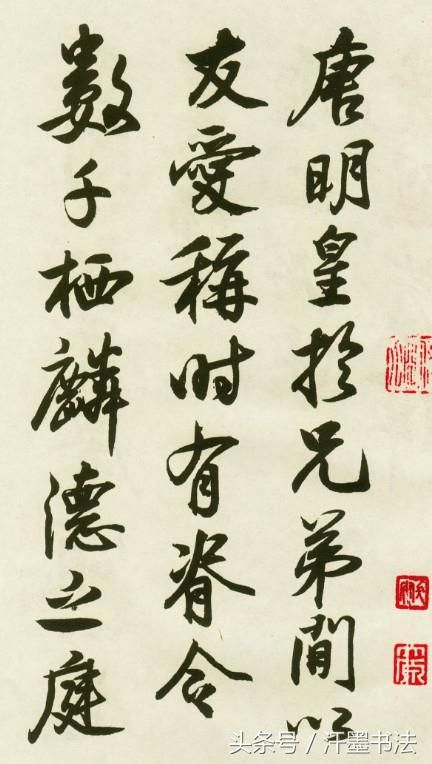 唐明皇於兄弟間以
友愛稱时有脊令
數千栖麟德之庭
头条号／汗墨书法